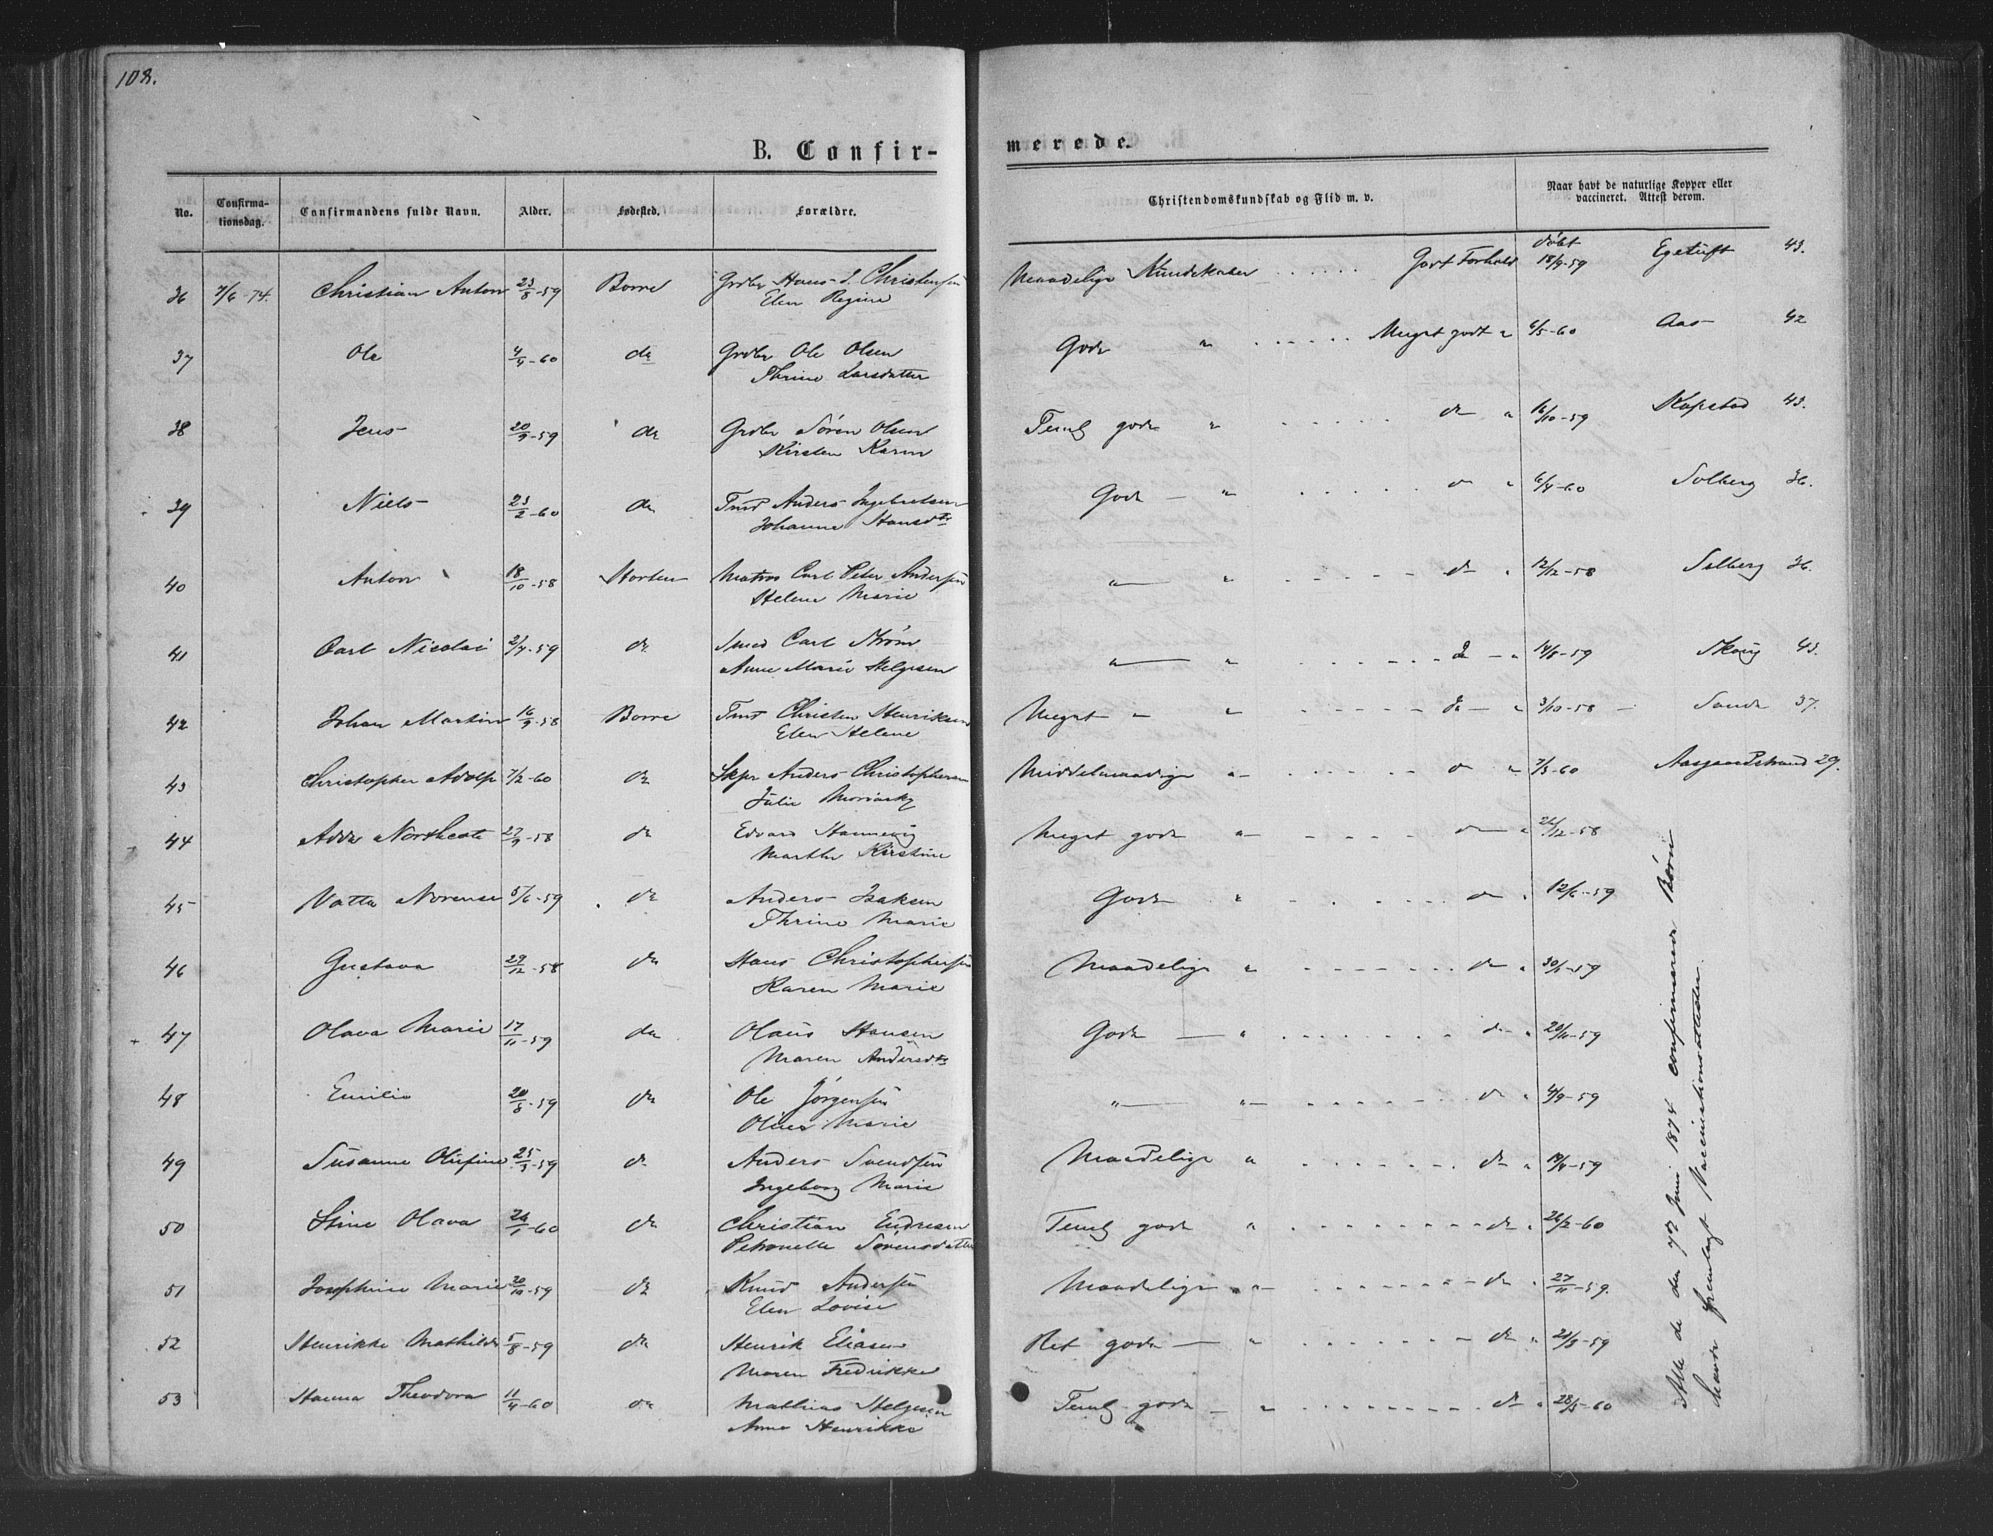 108.
B. Confir-
merede.
No. Confirma- tionsdag. Confirmandens fulde Navn. Alder. Fødested. Forældre. Christendomskundskab og Flid m. v. Naar havt de naturlige Kopper eller vaccineret. Attest derom.
36 7/6 -74. Christian Anton 23/8-59 Borre Grdbr Hans J. Christensen Maadelige Kundskaber Godt Forhold døbt 18/9-59 Egetuft 43.
Elen Regine
37 Ole 4/4-60 do Grdbr Ole Olsen Gode " Meget godt " 6/5-60 Aas 42
Thrine Larsdatter
38 Jens 20/9-59 do Grdbr Søren Olsen Teml gode " do " 16/10-59 Kopstad 43.
Kirsten Karin
39 Niels 23/2-60 do Tmd Anders Ingebretsen Gode " do " 6/4-60 Solberg 36.
Johanne Hansdtr
40 Anton 18/10-58 Horten Matros Carl Peter Andersen " " do " 12/12-58 Solberg 36.
Helene Marie
41 Carl Nicolai 2/4-59 do Smed Carl Strøm " " do " 14/8-59 Skoug 43.
Anne Marie Helgesen
42 Johan Martin 16/9-58 Borre Tmd Christen Henriksen Meget " " do " 3/10-58 Sande 37.
Elen Helene
43 Christopher Adolf 7/2-60 do Skpr Anders Christophersen Middelmaadige " do " 7/5-60 Aasgaardstrand 29.
Julie
44 Adda Northcote 27/9-58 do Edvard Hannevig Meget gode " do " 26/12-58
Marthe Kirstine
45 Netta Norense 5/6-59 do Anders Isaksen Gode " do " 12/6-59
Thrine Marie
46 Gustava 29/12-58 do Hans Christophersen Maadelige " do " 30/1-59
Karen Marie
47 Olava Marie 17/11-59 do Olaus Hansen Gode " do " 20/11-59
Maren Andersdtr
48 Emilie 20/8-59 do Ole Jørgensen " " do " 4/9-59
Marie
49 Susanne Olufine 25/3-59 do Anders Svendsen Maadelige " do "
Ingeborg Marie
50 Stine Olava do Christian Endresen Teml gode " do " 26/2-60
Petronelle Sørensdatter
51 Josephine Marie 20/10-59 do Knud Andersen Maadelige " do " 27/11-59.
Elen Lovise
52 Henrikke Mathilde 5/8-59 do Henrik Eliasen Ret gode " do " 21/8-59
Maren Fredrikke
53 Hanna Theodora 11/4-60 do Mathias Helgesen Teml gode " do " 28/5-60
Anne Henrikke
Alle de den 7de Juni 1874 confirmerede Børn
havde fremlagt Vaccinationsattester.